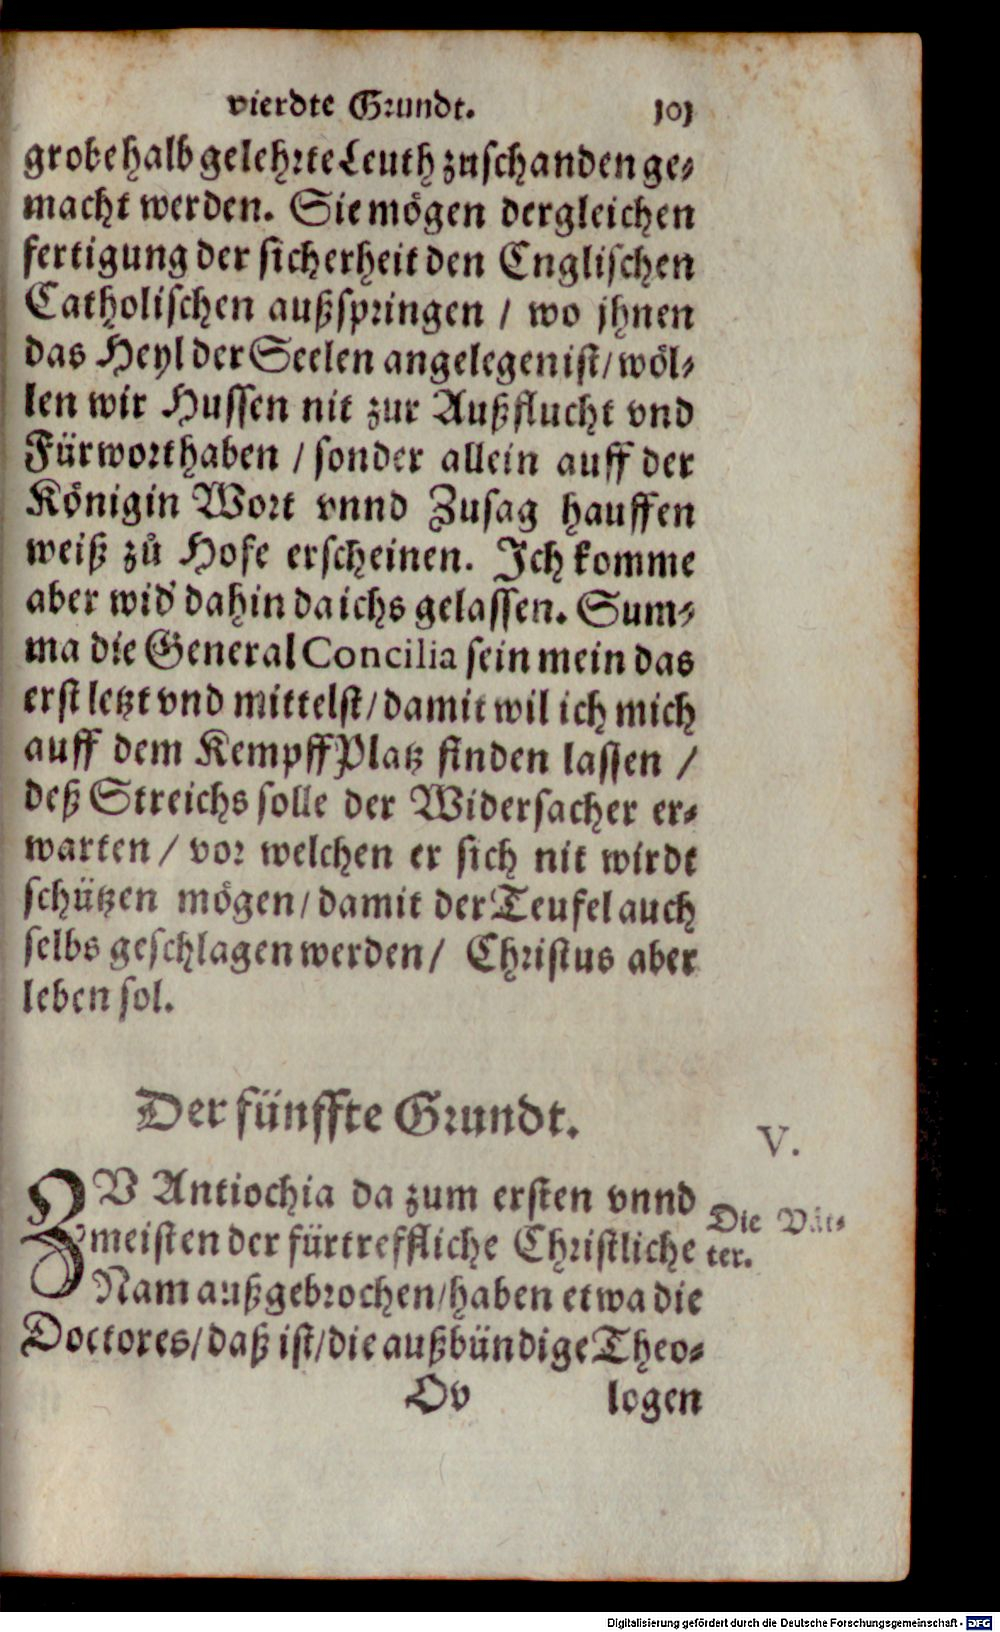 vierdte Grundt. 103
grobe halb gelehrte Leuth zuschanden ge-
macht werden. Sie mögen dergleichen
fertigung der sicherheit den Englischen
Catholischen außspringen / wo jhnen
das Heyl der Seelen angelegen ist / wöl-
len wir Hussen nit zur Außflucht vnd
Fürwort haben / sonder allein auff der
Königin Wort vnnd Zusag hauffen
weiß zů Hofe erscheinen. Ich komme
aber wid' dahin da ichs gelassen. Sum-
ma die General Concilia sein mein das
erst letzt vnd mittelst / damit wil ich mich
auff dem Kempff Platz finden lassen /
deß Streichs solle der Widersacher er-
warten / vor welchen er sich nit wirdt
schützen mögen / damit der Teufel auch
selbs geschlagen werden / Christus aber
leben sol.
Der fünffte Grundt.
V.
ZV Antiochia da zum ersten vnnd
meisten der fürtreffliche Christliche
Nam außgebrochen / haben etwa die
Doctores / daß ist / die außbündige Theo-
Die Vät-
ter.
Ov logen
Digitalisierung gefördert durch die Deutsche Forschungsgemeinschaft - DFG